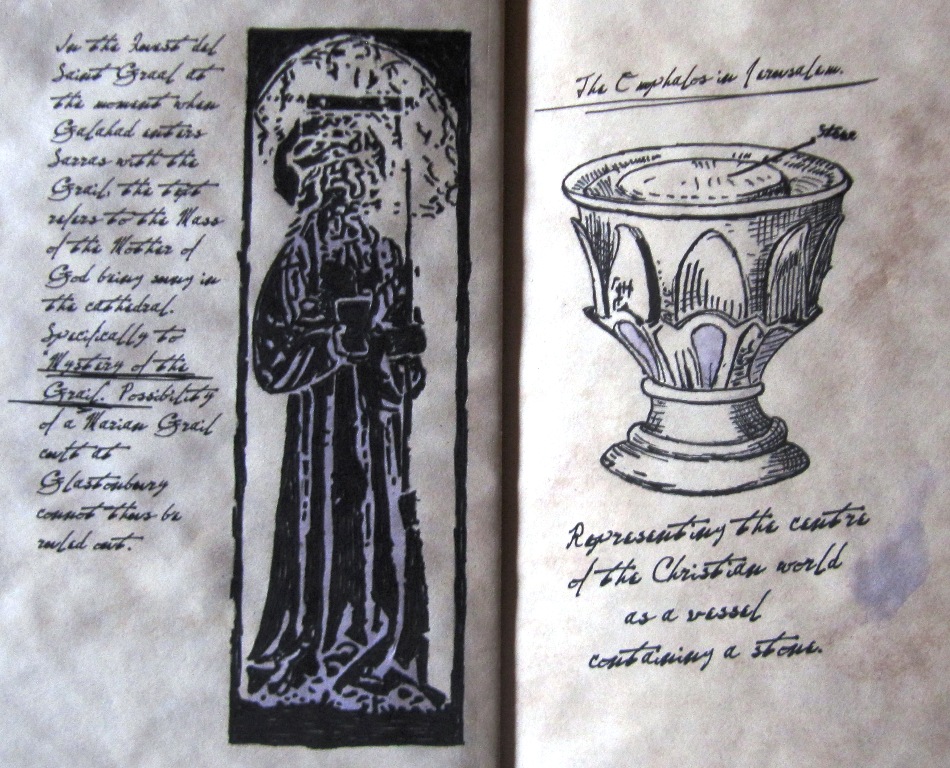 In the Quest del
Saint Graal at
the moment when
Galahad enters
Sarras with the
Grail, the text
refers to the Mass
of the Mother of
God being sung in
the cathedral.
Specifically to
"Mystery of the
Grail. Possibility
of a Marian Grail
cult at
Glastonbury
cannot thus be
ruled out.
The Omphalos in Jerusalem.
Stone
Representing the centre
of the Christian world
as a vessel
containing a stone.